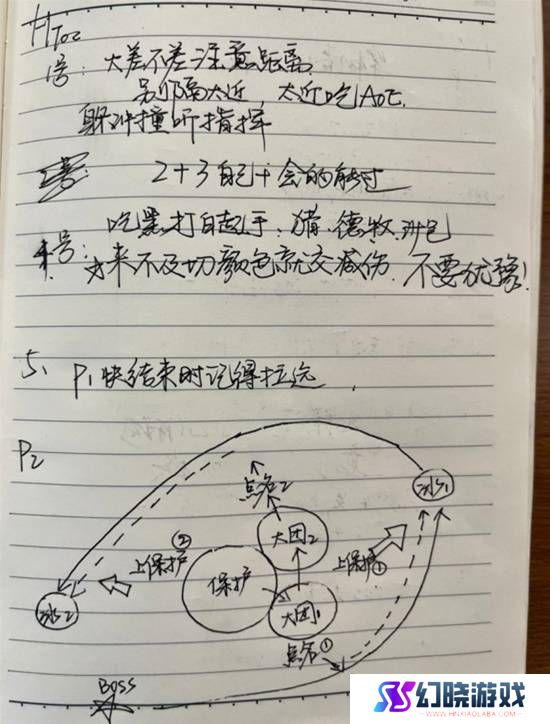 HTOC
1号: 大差不差注意距离
别隔太近, 太近吃AOE.
躲冲撞听指挥
2+3自己十会的能过
吃黑打白起手. 猎. 德牧
4号: 来不及切颜色就交减伤. 不要犹豫!
5、P1快结束时记得拉远.
P2
点名2
冰1
大团2
②
上保护
保护
上保护
①
冰2
大团1
点名①
BOSS
幻晓游戏
WWW.HNXIAOLABA.COM